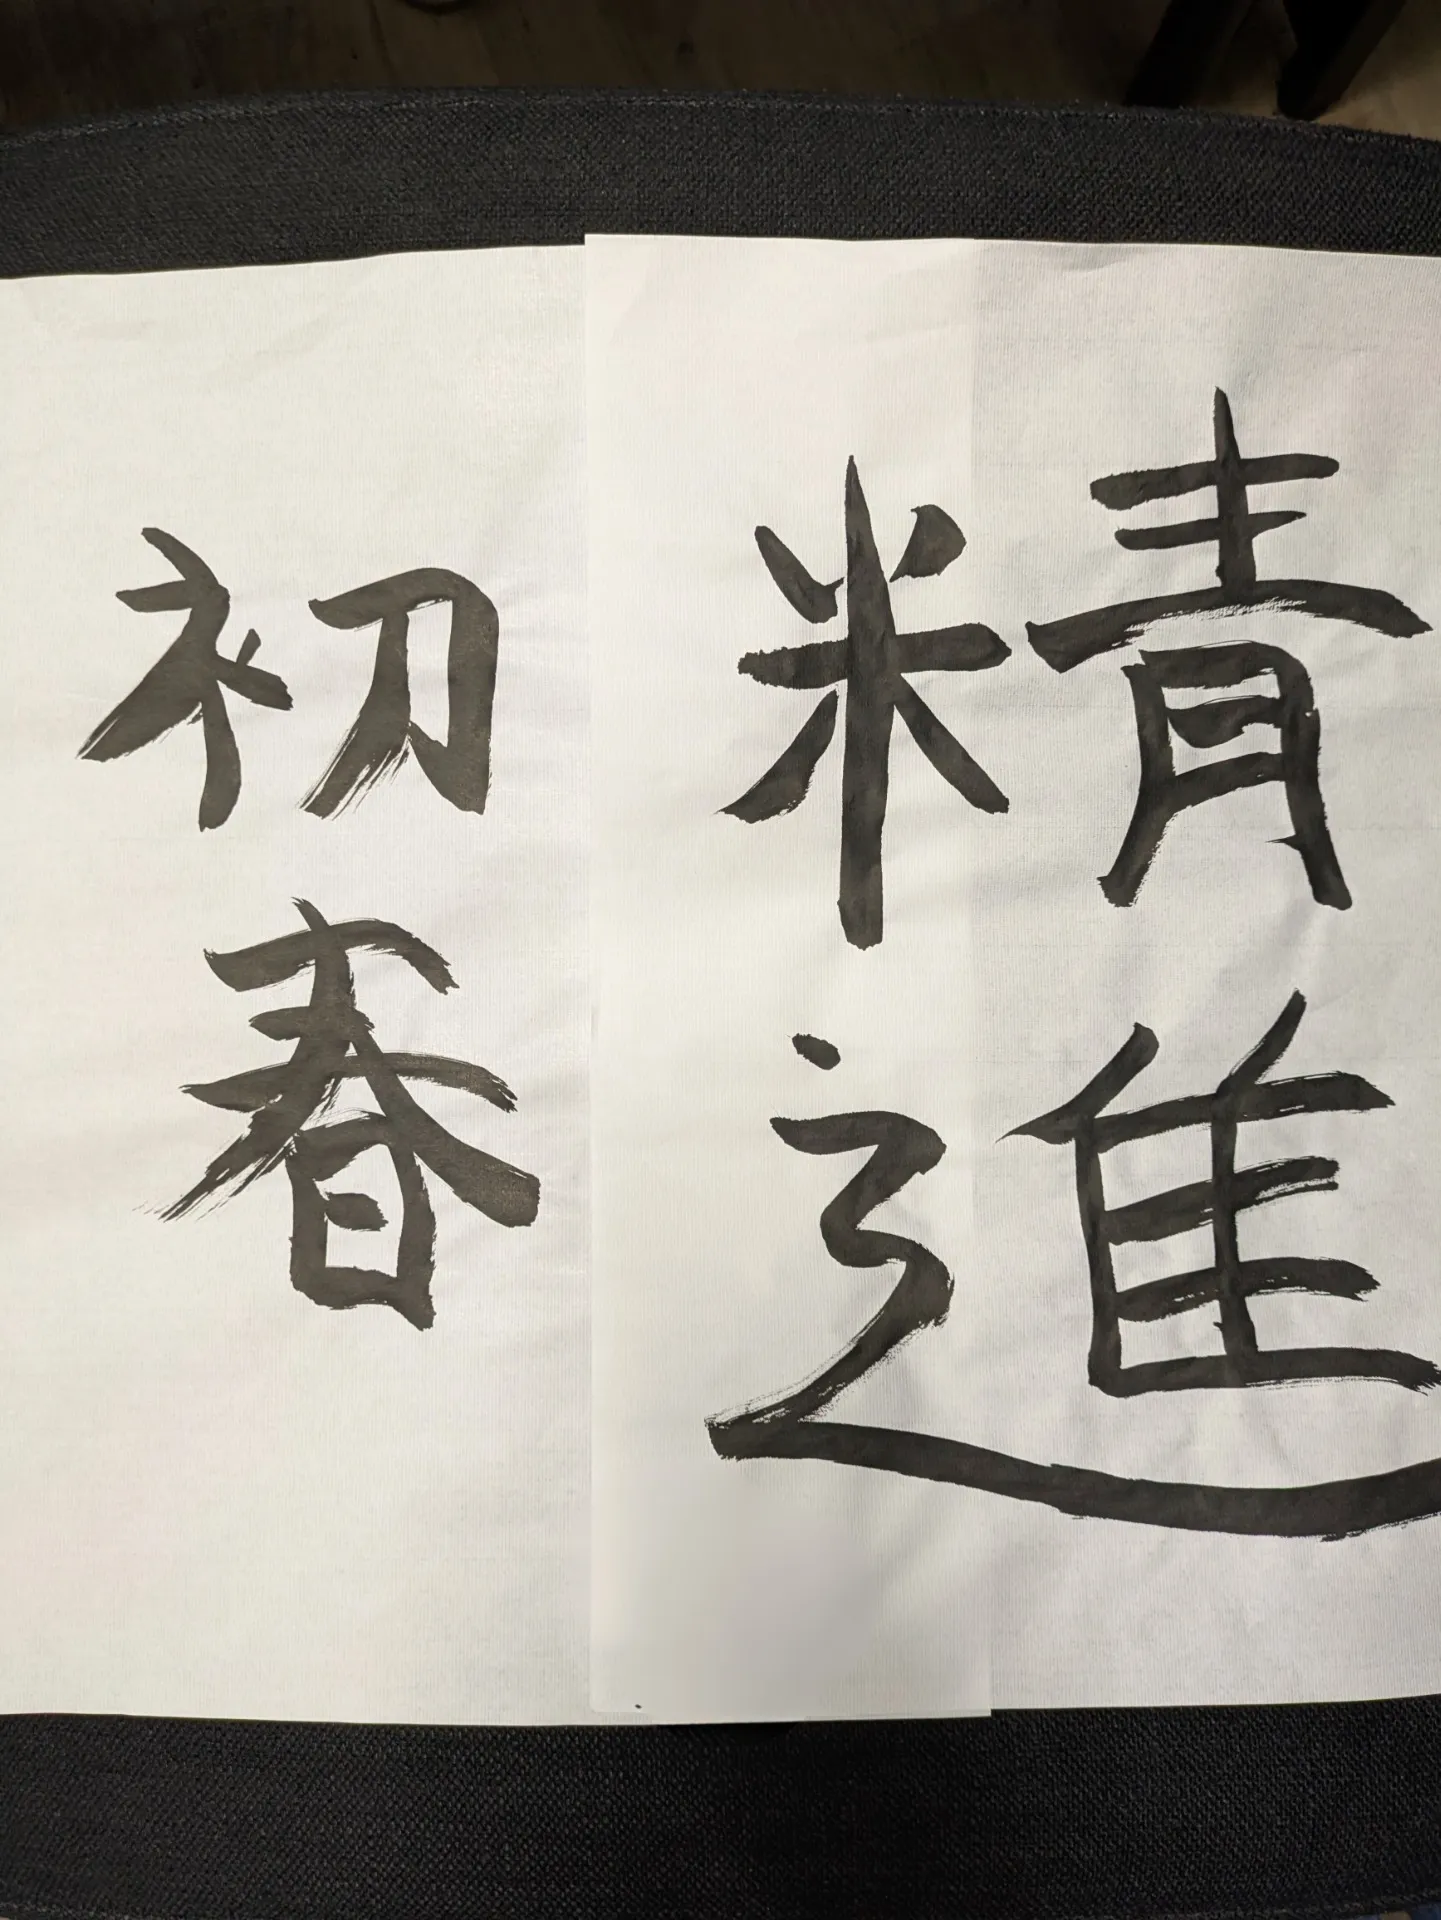 精進
初春